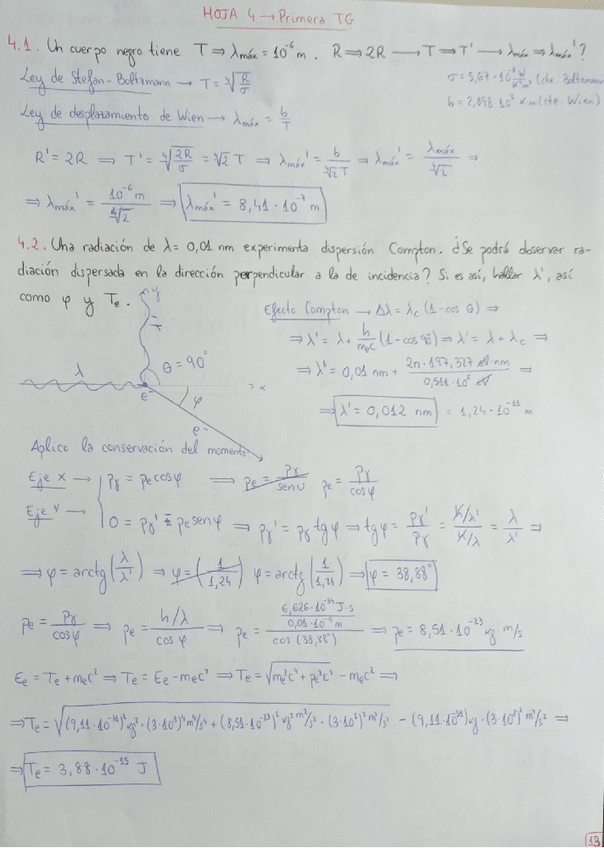 HOJA 4 → Primera TG
4.1. Un cuerpo negro tiene T ⇒ λmáx = 10⁻⁶ m. R ⇒ 2R → T ⇒ T' → λmáx ⇒ λmáx'?
Ley de Stefan-Boltzmann → T = ⁴√(R/σ)
σ = 5,67·10⁻⁸ W/K⁴m² (cte. Boltzmann
Ley de desplazamiento de Wien → λmáx = b/T
b = 2,898·10⁻³ K m (cte. Wien)
R' = 2R ⇒ T' = ⁴√(2R/σ) = ⁴√2 T ⇒ λmáx' = b/(⁴√2 T) ⇒ λmáx' = λmáx/⁴√2 ⇒
⇒ λmáx' = 10⁻⁶ m/⁴√2 ⇒ λmáx' = 8,41·10⁻⁷ m
4.2. Una radiación de λ = 0,01 nm experimenta dispersión Compton. ¿Se podrá observar ra-
diación dispersada en la dirección perpendicular a la de incidencia? Si es así, hallar λ', así
como φ y Te.
y
λ'
λ
θ = 90°
x
φ
e⁻
e⁻
Efecto Compton → Δλ = λc (1 - cos θ) ⇒
⇒ λ' = λ + h/mec (1 - cos 90°) ⇒ λ' = λ + λc ⇒
⇒ λ' = 0,01 nm + 2π·197,327 eV·nm/0,511·10⁶ eV ⇒
⇒ λ' = 0,012 nm = 1,24·10⁻¹¹ m
Aplico la conservación del momento:
Eje X → pγ = pe cosφ ⇒ pe = pγ/senυ pe = pγ/cosφ
Eje Y → 0 = pγ' - pe senφ ⇒ pγ' = pγ tgφ ⇒ tgφ = pγ'/pγ = (h/λ')/(h/λ) = λ/λ' ⇒
⇒ φ = arctg(λ/λ') ⇒ φ = (1/1,24) φ = arctg(1/1,24) ⇒ φ = 38,88°
pe = pγ/cosφ ⇒ pe = (h/λ)/cosφ ⇒ pe = (6,626·10⁻³⁴ J·s/0,01·10⁻⁹ m)/cos(38,88°) ⇒ pe = 8,51·10⁻²³ kg·m/s
Ee = Te + mec² ⇒ Te = Ee - mec² ⇒ Te = √(me²c⁴ + pe²c²) - mec² ⇒
⇒ Te = √((9,11·10⁻³¹)² kg²·(3·10⁸)⁴ m⁴/s⁴ + (8,51·10⁻²³)² kg² m²/s²·(3·10⁸)² m²/s²) - (9,11·10⁻³¹) kg·(3·10⁸)² m²/s² ⇒
⇒ Te = 3,88·10⁻¹⁵ J
19